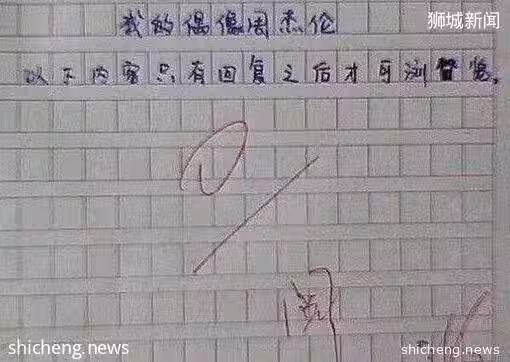 狮城新闻
我的偶像周杰伦
以下内容只有回复之后才可浏览。
0
阅
shicheng.news
shicheng.news